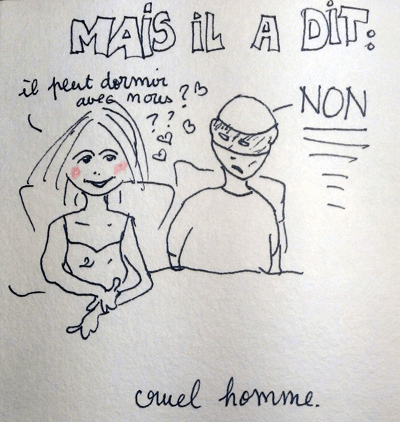 MAIS IL A DIT:
il peut dormir
avec nous ?
? ?
NON
cruel homme.